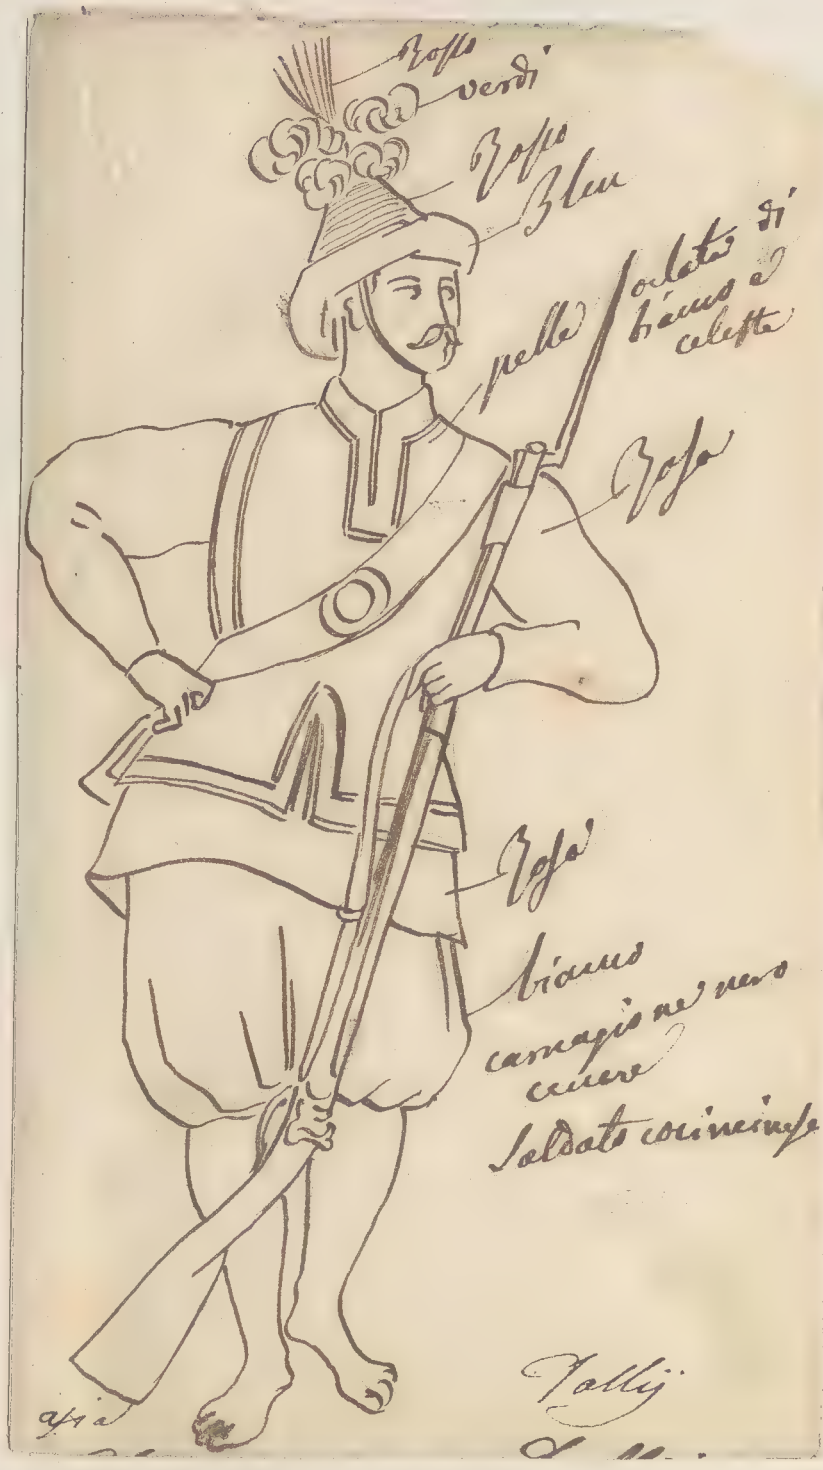 Rosso
verdi
Rosso
Bleu
pelle
orlata di
biauco e
celeste
Rosa
Rosa
biauco
carnagione nero
cenere
Soldato cocincinese
asia